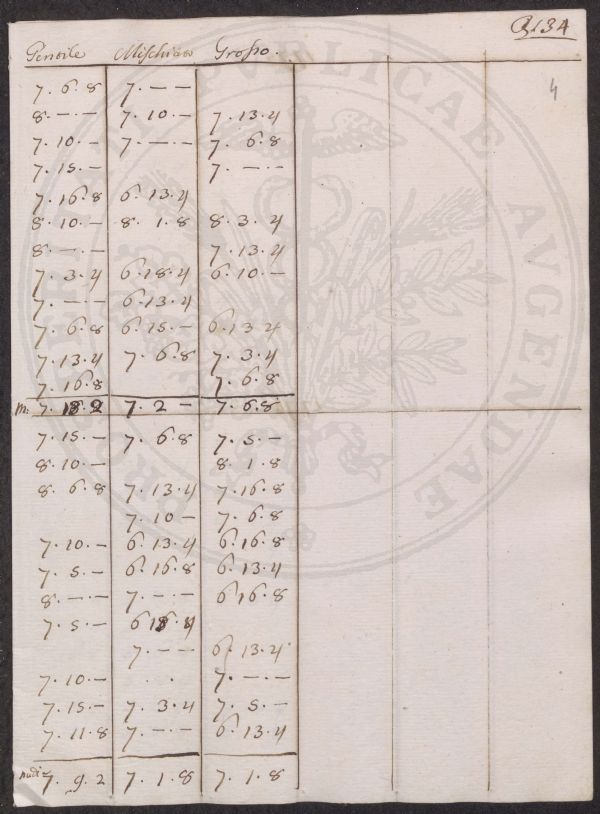 B.134
4
Gentile Mischiao Grosso.
7. 6. 8 7. — —
8. —. — 7. 10. — 7. 13. 4
7. 10. — 7. —. — 7. 6. 8
7. 15. — 7. —. —
7. 16. 8 6. 13. 4
8. 10. — 8. 1. 8 8. 3. 4
8. —. — 7. 13. 4
7. 3. 4 6. 18. 4 6. 10. —
7. —. — 6. 13. 4
7. 6. 8 6. 15. — 6. 13. 4
7. 13. 4 7. 6. 8 7. 3. 4
7. 16. 8 7. 6. 8
m: 7. 9. 2 7. 2 — 7. 6. 8
7. 15. — 7. 6. 8 7. 5. —
8. 10. — 8. 1. 8
8. 6. 8 7. 13. 4 7. 16. 8
7. 10 — 7. 6. 8
7. 10. — 6. 13. 4 6. 16. 8
7. 5. — 6. 16. 8 6. 13. 4
8. —. — 7. —. — 6 16. 8
7. 5. — 6 4
7. — — 6. 13. 4
7. 10. — . . 7. —. —
7. 15. — 7. 3. 4 7. 5. —
7. 11. 8 7. —. — 6. 13. 4
7. 9. 2 7. 1. 8 7. 1. 8
PUBLICAE
AUGENDAE